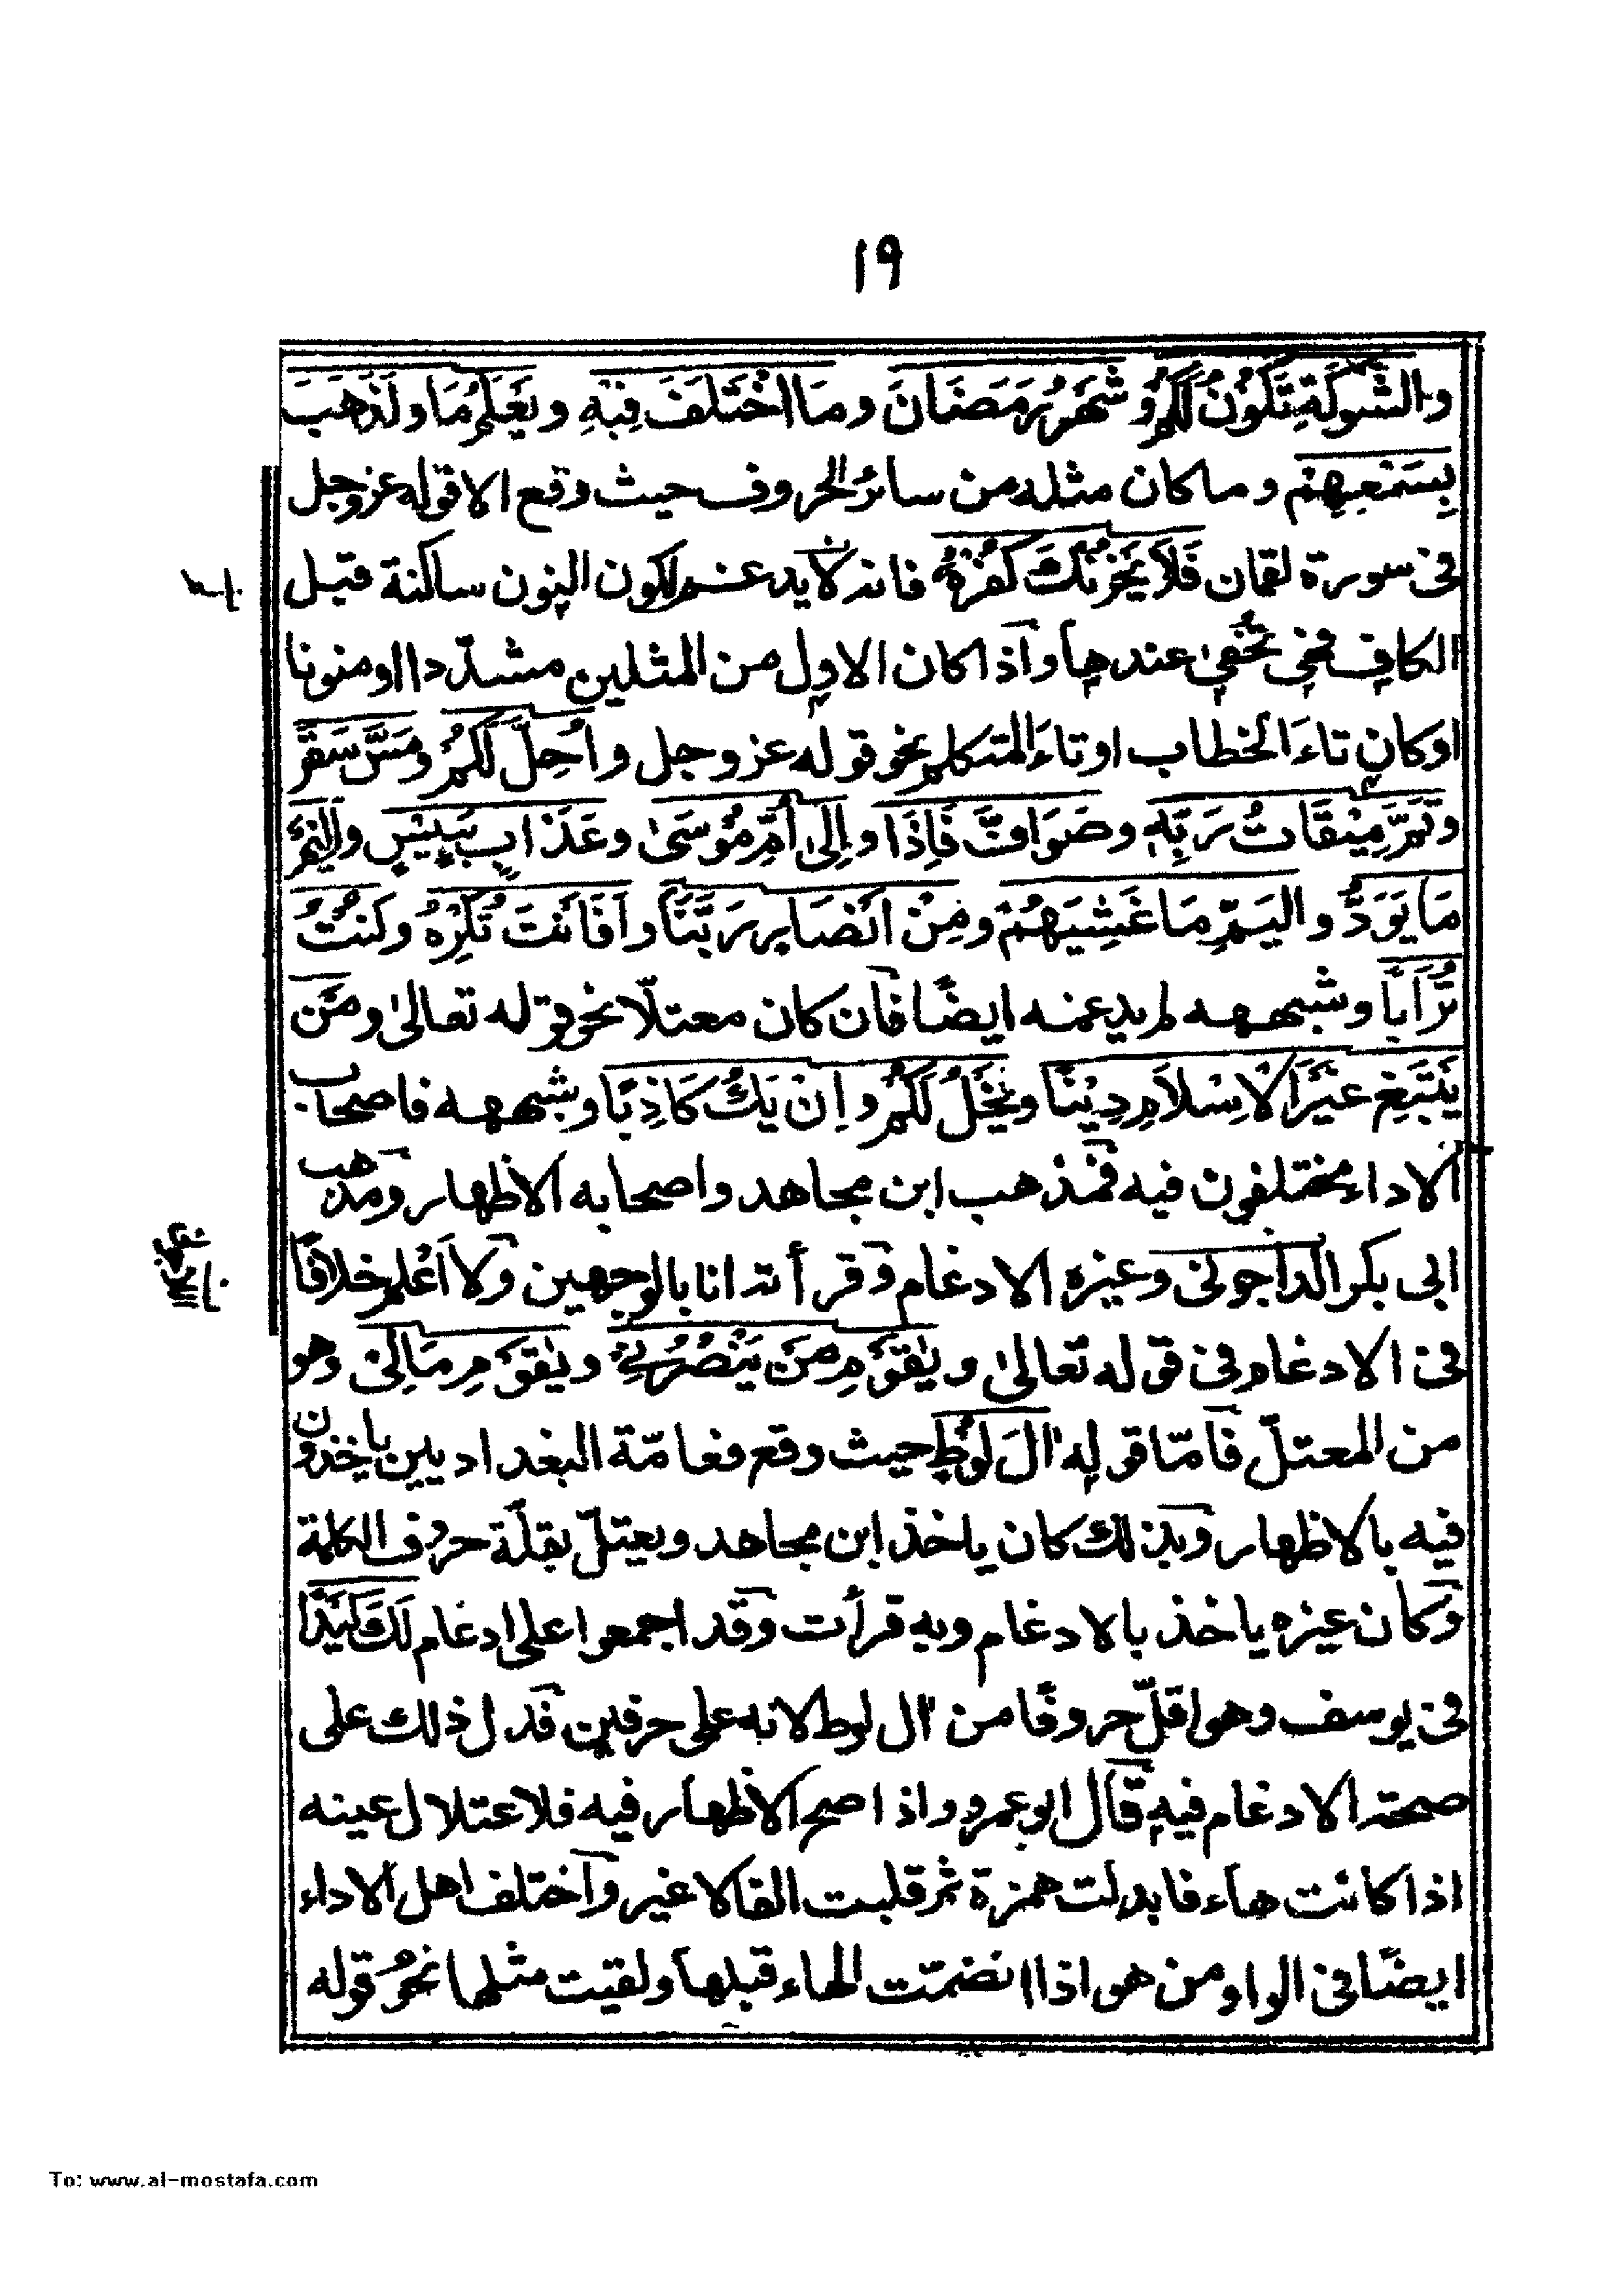 ١٩
والشَّوْكَةِ تَكُوْنُ لَكُمْ وشَهْرُ رَمَضَانَ ومَا اخْتَلَفَ فِيْهِ ويَعْلَمُ مَا ولَذَهَبَ
بِسَمْعِهِمْ وما كان مثله من سائر الحروف حيث وقع الا قوله عز وجل
فى سورة لقمان فَلَا يَحْزُنْكَ كُفْرُهُ فانه لا يدغم لكون النون ساكنة قبل
الكاف فهى تخفى عندها واذا كان الاول من المثلين مشدّدا او منونا
او كان تاءَ الخطاب او تاءَ المتكلم نحو قوله عز وجل واُحِلَّ لَكُمْ ومَسَّ سَقَرَ
وتَمَّ مِيْقَاتُ رَبِّهِ وصَوَافَّ فَإِذَا وإِلىٰ أُمِّ مُوْسَىٰ وعَذَابٍ بَئِيْسٍ والنِيَمِّ
مَا يَوَدُّ واليَمِّ مَا غَشِيَهُمْ ومِنْ اَنْصَارٍ رَبَّنَا وأَفَاَنْتَ تُكْرِهُ وكُنْتُ
تُرَابًا وشبهه لم يدغمه ايضًا فان كان معتلّا نحو قوله تعالىٰ ومَن
يَبْتَغِ غَيْرَ الْاِسْلَامِ دِيْنًا ويَخْلُ لَكُمْ واِنْ يَكُ كَاذِبًا وشبهه فاصحاب
الاداء مختلفون فيه فمذهب ابن مجاهد واصحابه الاظهار ومذهب
ابى بكر الداجونى وغيره الادغام وقرأته انا بالوجهين ولا اَعْلَم خلافًا
فى الادغام فى قوله تعالىٰ ويٰقَوْمِ مَنْ يَنْصُرُنِىْ ويٰقَوْمِ مَالِىْ وهو
من المعتلّ فامّا قوله اٰلَ لُوْطٍ حيث وقع فعامّة البغداديين ياخذون
فيه بالاظهار وبذلك كان ياخذ ابن مجاهد ويعتلّ بقلّة حروف الكلمة
وكان غيره ياخذ بالادغام وبه قرأت وقد اجمعوا على ادغام لَكَ كَيْدًا
فى يوسف وهو اقلّ حروفًا من اٰل لوط لانه على حرفين فدل ذلك على
صحته الادغام فيه قال ابو عمرو واذا صح الاظهار فيه فلاعتلال عينه
اذا كانت هاء فابدلت همزة ثم قلبت الفا لا غير واختلف اهل الاداء
ايضًا فى الواو من هو اذا انضمّت الهاء قبلها ولقيت مثلها نحوُ قوله
To: www.al-mostafa.com